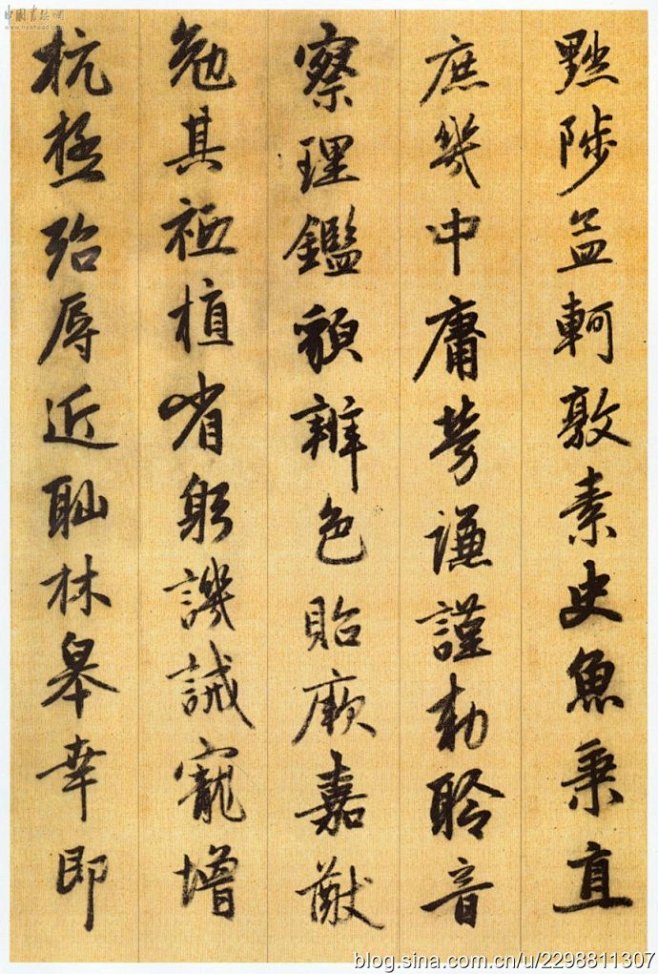 黜陟孟軻敦素史魚秉直
庶幾中庸勞謙謹勅聆音
察理鑑貌辨色貽厥嘉猷
勉其祗植省躬譏誡寵增
抗極殆辱近耻林皋幸即
blog.sina.com.cn/u/2298811307